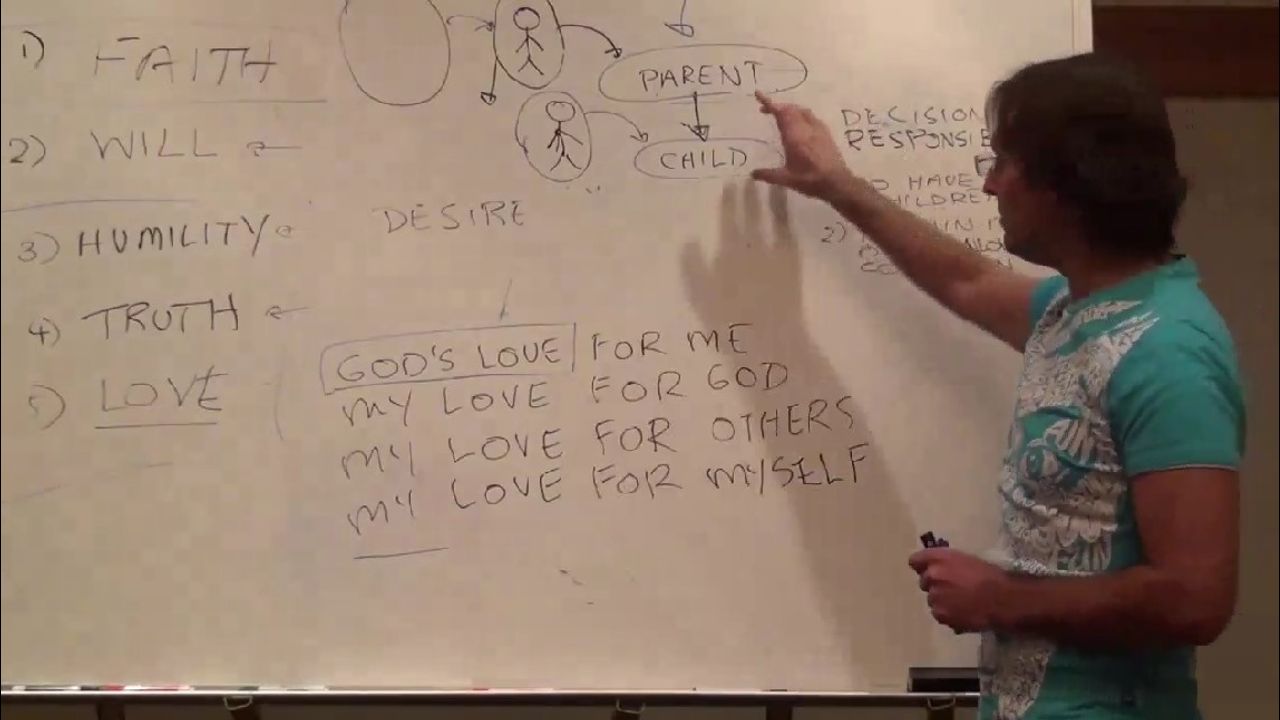 1) FAITH
2) WILL
3) HUMILITY
4) TRUTH
5) LOVE
PARENT
CHILD
DESIRE
GOD'S LOVE FOR ME
MY LOVE FOR GOD
MY LOVE FOR OTHERS
MY LOVE FOR MYSELF
DECISION
HAVE
2)